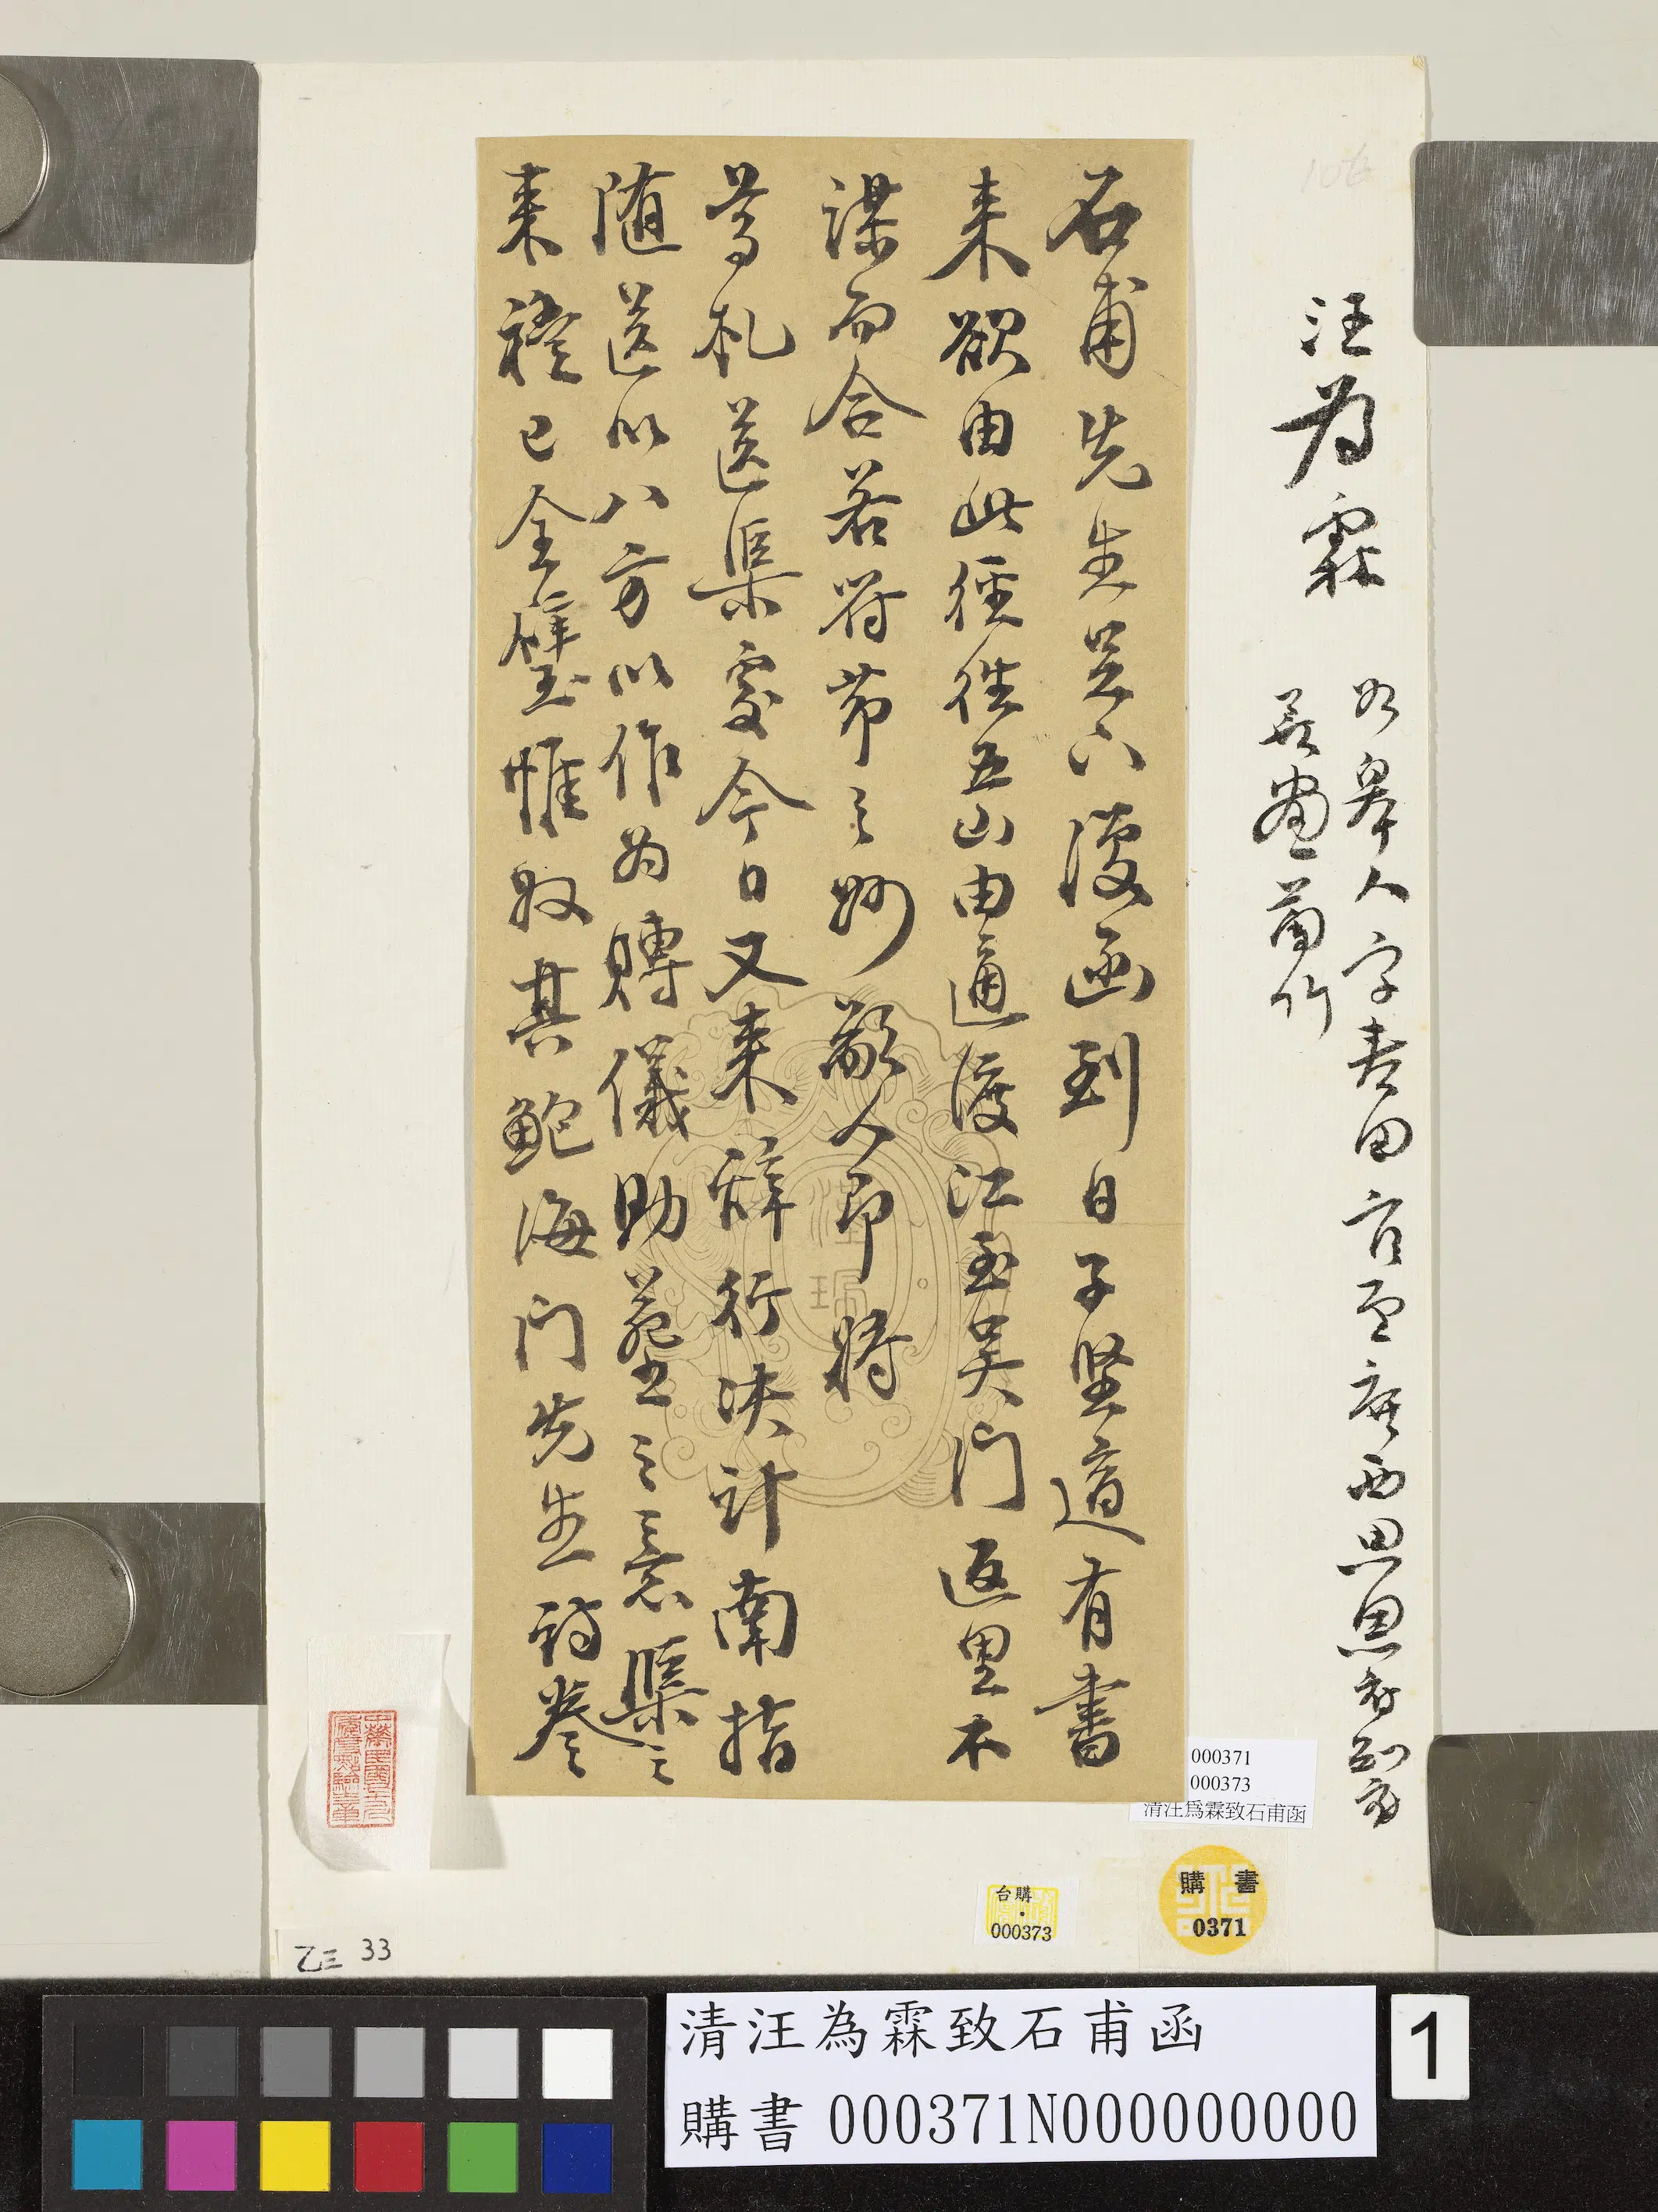 汪為霖
如皋人字春田官至廣西思恩府知府
善畫蘭竹
石甫先生足下復函到日子堅適有書
来欲由此徑往五山由通渡江至吴門返里不
謀而合若符節之妙敝人即將
尊札送渠處今日又来辞行決計南指
随送以八方以作為賻儀助葬之意渠之
来禮已全璧惟收其鮑海门先生詩卷
漢瑞
000371
000373
清汪為霖致石甫函
購書
0371
台購
000373
乙三 33
清汪為霖致石甫函
購書 000371N000000000
1